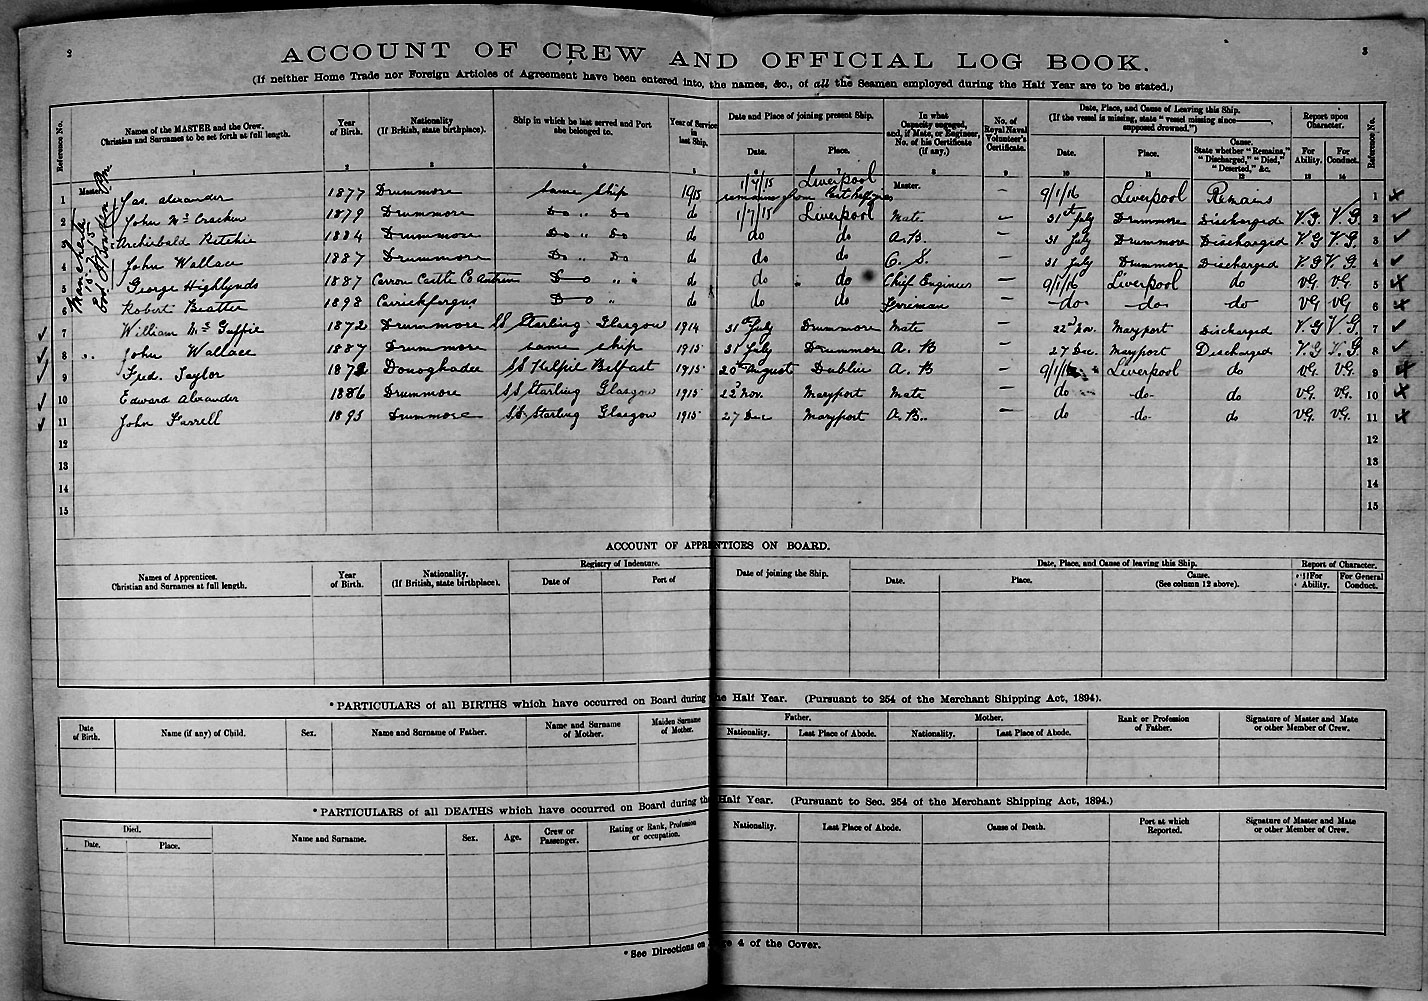 2
3
ACCOUNT OF CREW AND OFFICIAL LOG BOOK.
(If neither Home Trade nor Foreign Articles of Agreement have been entered into, the names, &c., of all the Seamen employed during the Half Year are to be stated.)
Reference No. Names of the MASTER and the Crew. Christian and Surnames to be set forth at full length. Year of Birth. Nationality (If British, state birthplace). Ship in which he last served and Port she belonged to. Year of Service in last Ship. Date and Place of joining present Ship. Date. Place. In what Capacity engaged, and, if Mate, or Engineer, No. of his Certificate (if any.) No. of Royal Naval Volunteer's Certificate. Date, Place, and Cause of Leaving this Ship. (If the vessel is missing, state "vessel missing since ——, supposed drowned.") Date. Place. Cause. State whether "Remains," "Discharged," "Died," "Deserted," &c. Report upon Character. For Ability. For Conduct. Reference No.
1 2 3 4 5 6 7 8 9 10 11 12 13 14
Manchester 15-7-15
1 Master Jas. Alexander 1877 Drummore same ship 1915 1/7/15 Liverpool remains from last half year Master. – 9/1/16 Liverpool Remains 1 x
2 John McCracken 1879 Drummore Do " Do do 1/7/15 Liverpool Mate – 31st July Drummore Discharged V.G. V.G. 2 ✓
3 Archibald Ritchie 1884 Drummore Do " Do do do do A.B. – 31 July Drummore Discharged V.G V.G. 3 ✓
4 John Wallace 1887 Drummore Do " Do do do do O.S. – 31 July Drummore Discharged V.G V.G. 4 ✓
5 George Highlynds 1887 Carron Castle Co Antrim Do " " do do " do Chief Engineer – 9/1/16 Liverpool do VG. VG. 5 x
6 Robert Beattie 1898 Carrickfergus Do " do do do Fireman – -do- -do- do VG VG 6 x
7 William McGuffie 1872 Drummore SS Starling Glasgow 1914 31st July Drummore Mate – 22nd Nov. Maryport Discharged V.G V.G. 7 ✓
8 John Wallace 1887 Drummore same ship 1915 31 July Drummore A.B – 27 Dec. Maryport Discharged V.G V.G. 8 ✓
9 Fred. Taylor 1872 Donoghadee SS Kelpie Belfast 1915 20th August Dublin A.B – 9/1/16 Liverpool do VG. VG. 9 x
10 Edward Alexander 1886 Drummore SS Starling Glasgow 1915 22nd Nov. Maryport Mate – do -do- do VG. VG. 10 x
11 John Farrell 1895 Drummore SS Starling Glasgow 1915 27 Dec Maryport A.B.. – do -do- do VG. VG. 11 x
12 12
13 13
14 14
15 15
ACCOUNT OF APPRENTICES ON BOARD.
Names of Apprentices. Christian and Surnames at full length. Year of Birth. Nationality. (If British, state birthplace). Registry of Indenture. Date of Port of Date of joining the Ship. Date, Place, and Cause of leaving this Ship. Date. Place. Cause. (See column 12 above). Report of Character. For Ability. For General Conduct.
*PARTICULARS of all BIRTHS which have occurred on Board during the Half Year. (Pursuant to 254 of the Merchant Shipping Act, 1894).
Date of Birth. Name (if any) of Child. Sex. Name and Surname of Father. Name and Surname of Mother. Maiden Surname of Mother. Father. Nationality. Last Place of Abode. Mother. Nationality. Last Place of Abode. Rank or Profession of Father. Signature of Master and Mate or other Member of Crew.
*PARTICULARS of all DEATHS which have occurred on Board during the Half Year. (Pursuant to Sec. 254 of the Merchant Shipping Act, 1894.)
Died. Date. Place. Name and Surname. Sex. Age. Crew or Passenger. Rating or Rank, Profession or occupation. Nationality. Last Place of Abode. Cause of Death. Port at which Reported. Signature of Master and Mate or other Member of Crew.
*See Directions on Page 4 of the Cover.